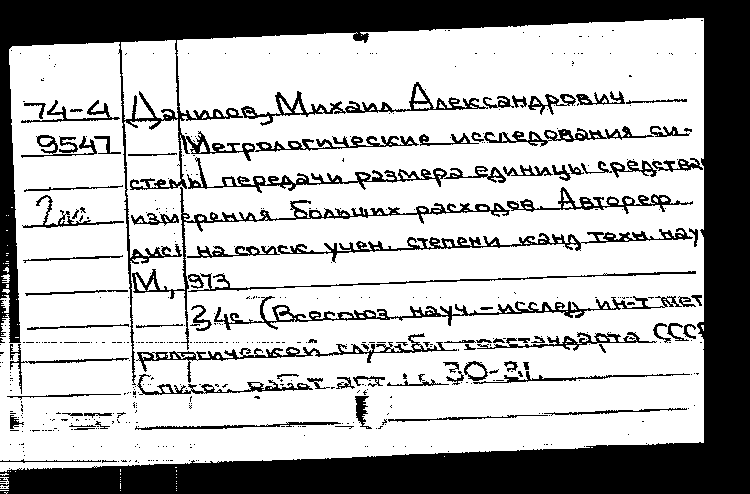 74-4 Данилов, Михаил Александрович
9547 Метрологические исследования си-
стемы передачи размера единицы средствам
измерения больших расходов. Автореф.
дисс на соиск. учен. степени канд техн. нау
М., 1973
34с (Всесоюз науч.-исслед ин-т мет
рологической службы госстандарта СССР
Список работ авт.: с. 30-31.